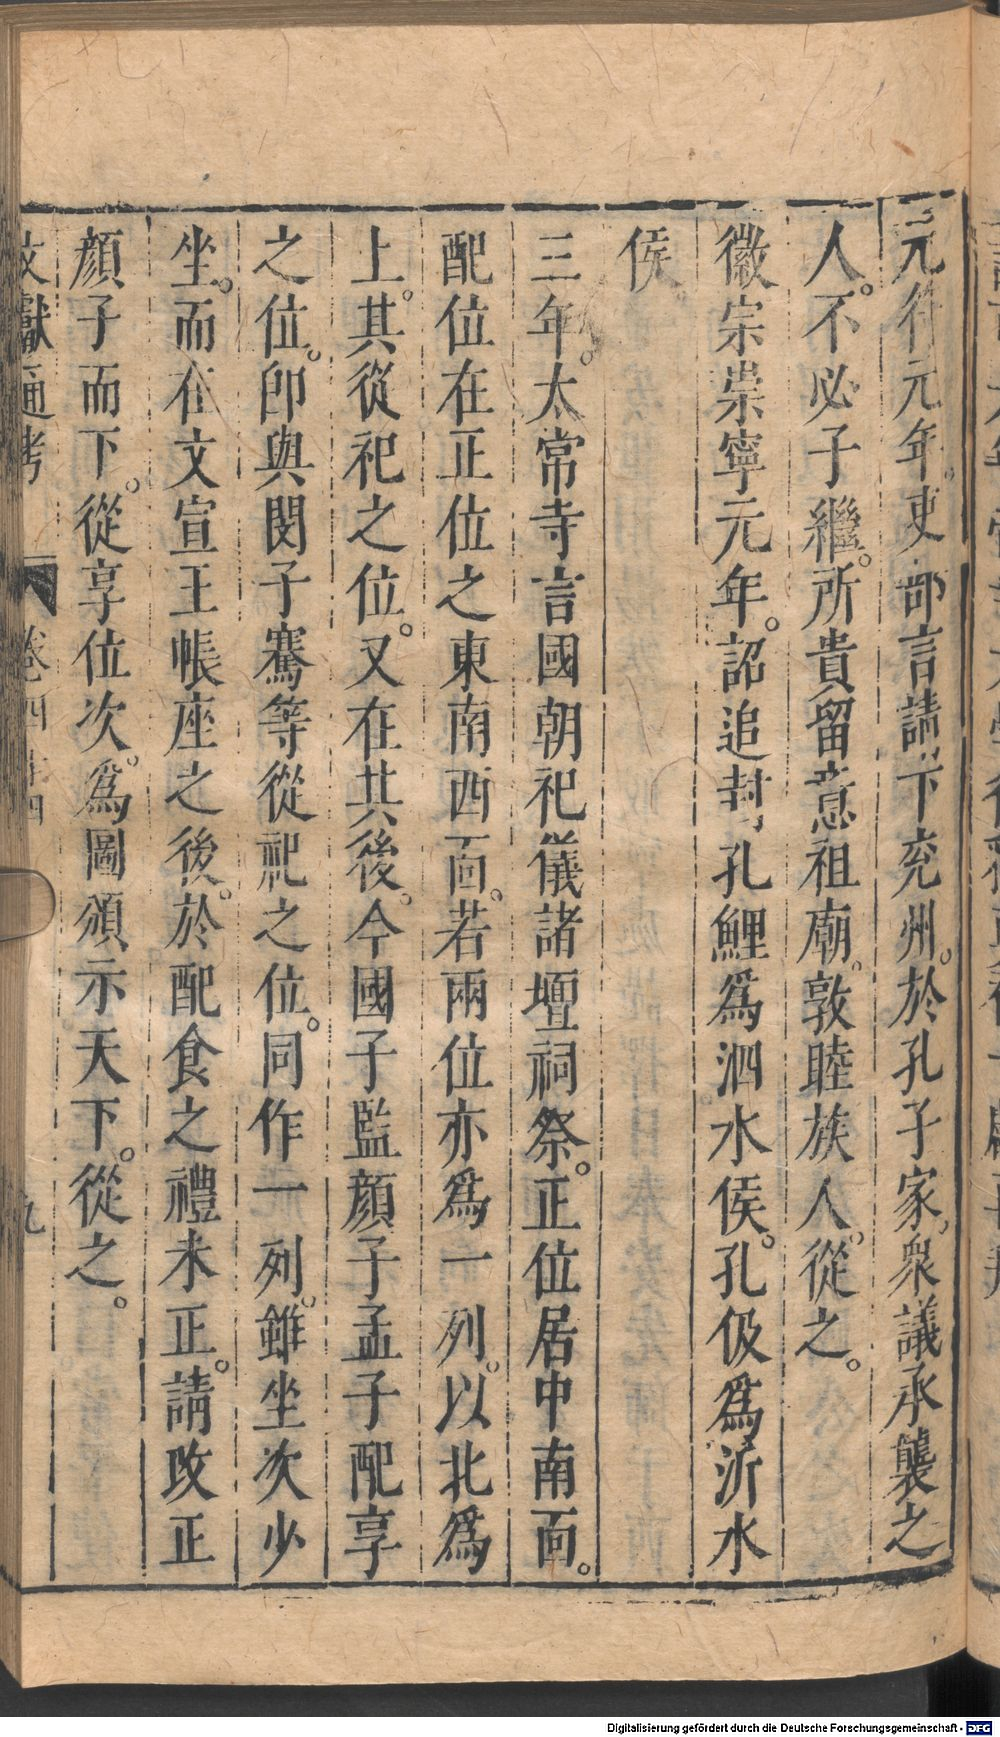 元符元年。吏部言請下兖州。於孔子家。衆議承襲之
人。不必子繼。所貴留意祖廟。敦睦族人。從之。
徽宗崇寧元年。詔追封孔鯉爲泗水侯。孔伋爲沂水
侯。
三年。太常寺言國朝祀儀諸壇祠祭。正位居中南面。
配位在正位之東南西面。若兩位亦爲一列。以北爲
上。其從祀之位。又在其後。今國子監顏子孟子配享
之位。卽與閔子騫等從祀之位。同作一列。雖坐次少
坐。而在文宣王帳座之後。於配食之禮未正。請改正
顏子而下。從享位次。爲圖頒示天下。從之。
文獻通考 卷四十四 九
Digitalisierung gefördert durch die Deutsche Forschungsgemeinschaft - DFG